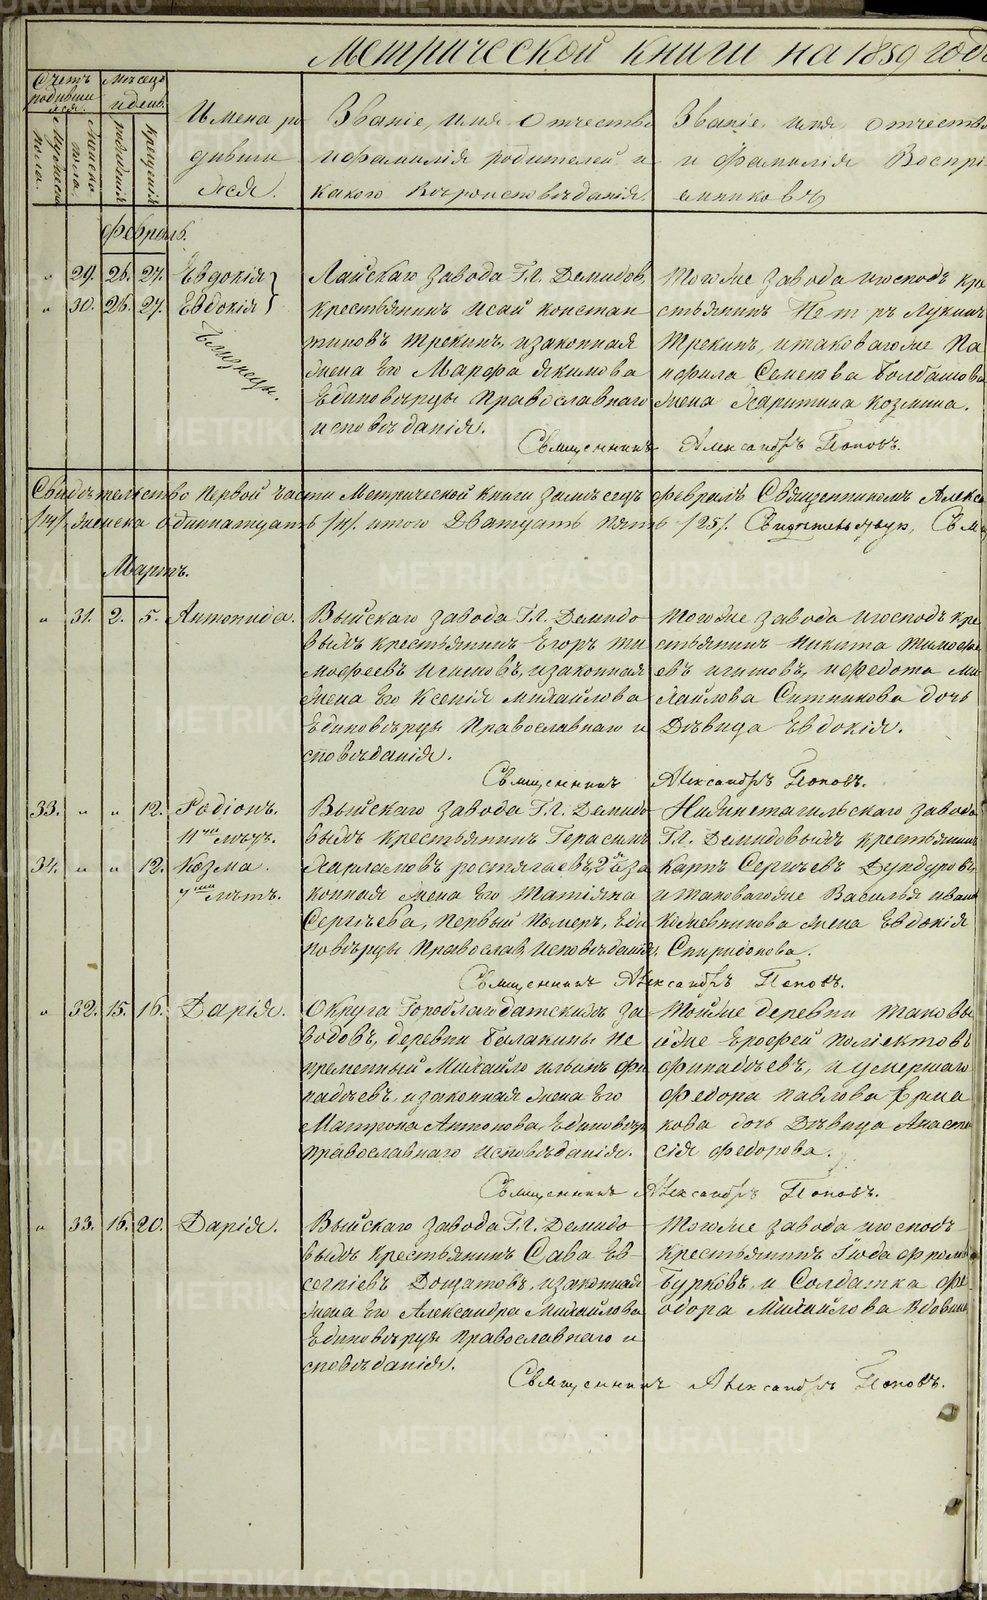 Метрической книги на 1859 годъ
Счетъ родившихся.
Мужеска пола.
Женска пола.
Месецъ и день.
рожденія
крещенія
Имена ро
дивши
яся.
Званіе, имя отчество
и фамилія родителей и
какого вѣроисповѣданія.
Званіе, имя, отчество
и фамилія Воспрі
емниковъ
Февраль.
" 29. 26. 27. Евдокія
" 30. 26. 27. Евдокія
Близнецы.
Лайскаго завода Г.г. Демидов,
крестьянинъ Исай констан
тиновъ Трекинъ, и законная
жена Его Марфа Якимова
Единовѣрцы Православнаго
исповѣданія.
Тогоже завода и господъ кре
стьянинъ Петръ Лукинъ
Трекинъ, и таковагоже Па
нфила Семенова Болдашова
жена Харитина Козмина.
Священникъ Александръ Поповъ.
Свидѣтельство первой части Метрической книги за мѣсецъ февраль Священникомъ Алекса
/14/ женска одиннатцать /11/ итого Дватцать пять /25/. Свидѣтельствую, Свящ
Мартъ.
" 31. 2. 5. Антонида.
Выйскаго завода Г.г. Демидо
выхъ крестьянинъ Егоръ ти
мофеевъ Игитовъ, и законная
жена Его Ксенія Михайлова
Единовѣрцы Православнаго и
сповѣданія.
Тогоже завода и господъ кре
стьянинъ Никита тимофе
евъ игитовъ, и федота Ми
хайлова Ситникова дочь
Дѣвица Евдокія.
Священникъ Александръ Поповъ.
33. " " 12. Родіонъ.
11ти лѣтъ.
34. " " 12. Козма.
7ми лѣтъ.
Выйскаго завода Г.г. Демидо
выхъ крестьянинъ Герасимъ
Харламовъ ростягаевъ, 2я за
конная жена Его Татіяна
Сергѣева, первый номеръ, Еди
новѣрцы Православ, исповѣданія,
Нижнетагильскаго завода
Г.г. Демидовыхъ крестьянинъ
Карпъ Сергѣевъ Дундуровъ,
и таковагоже Василья ивано
Кожевникова жена Евдокія
Спиридонова.
Священникъ Александръ Поповъ.
" 32. 15. 16. Дарія.
Округа Гороблагодатскихъ за
водовъ, деревни Балакины не
пременный Михайло ильинъ Фи
надѣевъ, и законная жена Его
Матрона Антонова, Единовѣр
православнаго исповѣданія.
Тойже деревни таковы
иже Ерофей поліектовъ
финадѣевъ, и умершаго
Федора павлова Ерма
кова дочь Дѣвица Анаста
сія федорова.
Священникъ Александръ Поповъ.
" 33. 16. 20. Дарія.
Выйскаго завода Г.г. Демидо
выхъ крестьянинъ Сава Ев
сегніевъ Дощатовъ, и законная
жена Его Александра Михайлова
Единовѣрцы православнаго и
сповѣданія.
Тогоже завода и господъ
крестьянинъ
Бурковъ, и Солдатка фе
одора Михайлова
Священникъ Александръ Поповъ.
METRIKI.GASO-URAL.RU